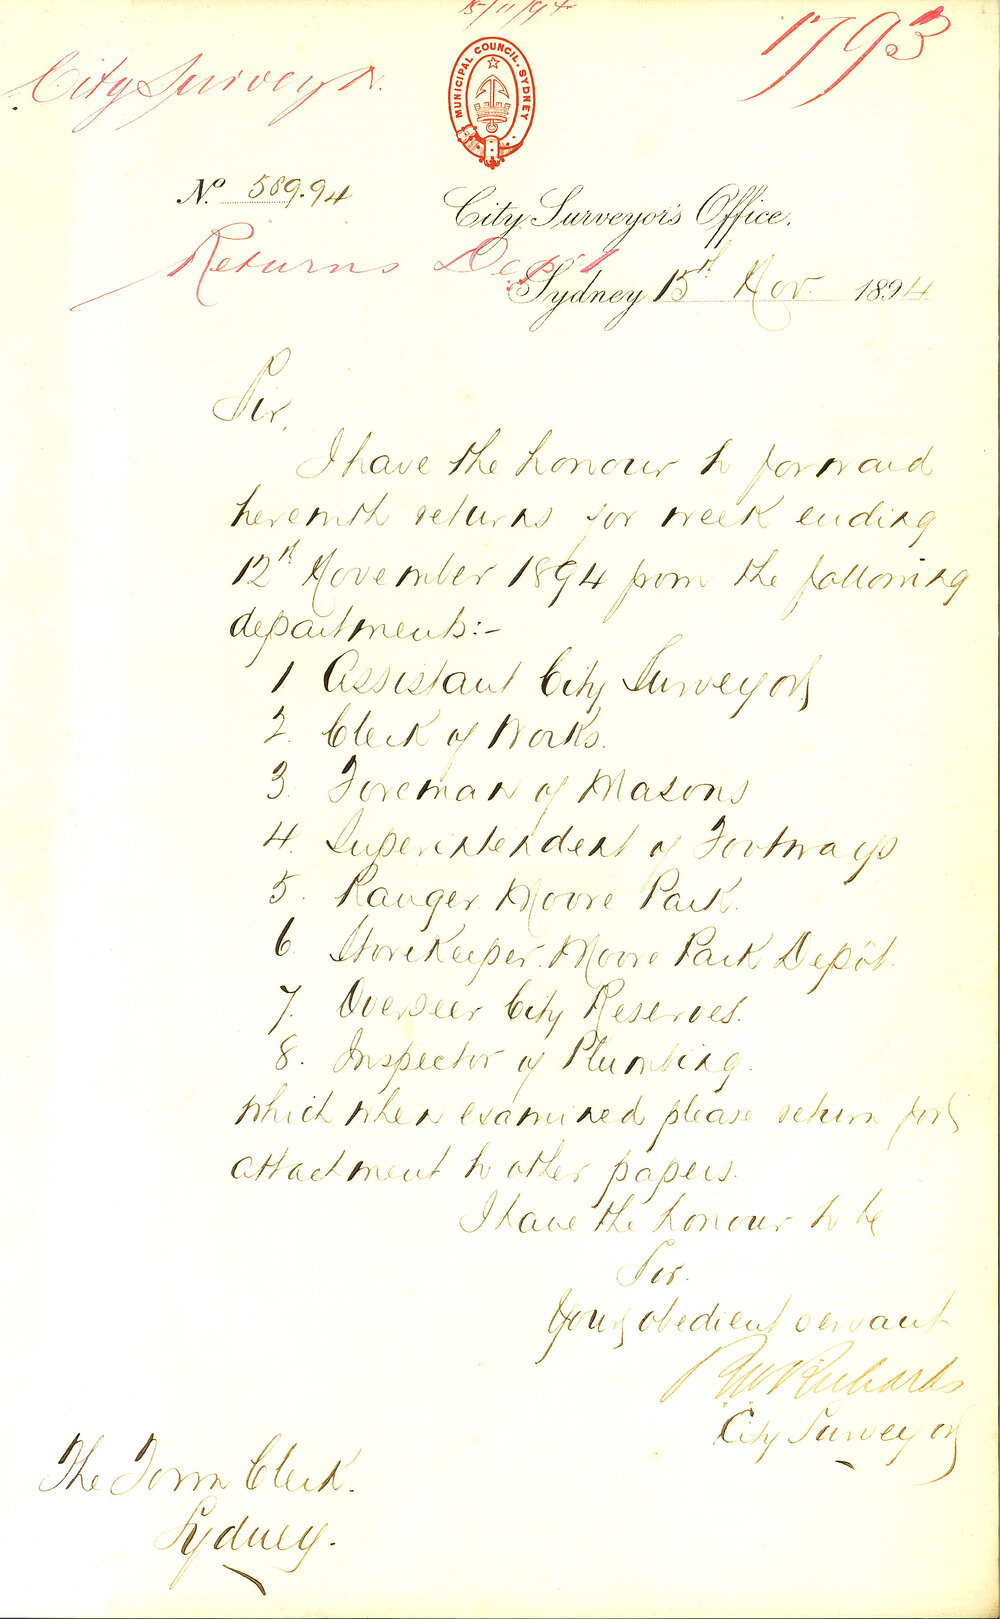 15/11/94
1793
City Surveyor.
MUNICIPAL COUNCIL. SYDNEY
No. 589.94
City Surveyor's Office,
Returns Dept
Sydney 15th Nov. 1894
Sir,
I have the honour to forward
herewith returns for week ending
12th November 1894 from the following
departments:-
1 Assistant City Surveyor
2. Clerk of Works.
3. Foreman of Masons
4. Superintendent of Footways
5. Ranger Moore Park.
6. Storekeeper. Moore Park Depôt.
7. Overseer City Reserves.
8. Inspector of Plumbing.
which when examined please return for
attachment to other papers.
I have the honour to be
Sir.
Your obedient servant
R W Richards
City Surveyor
The Town Clerk.
Sydney.